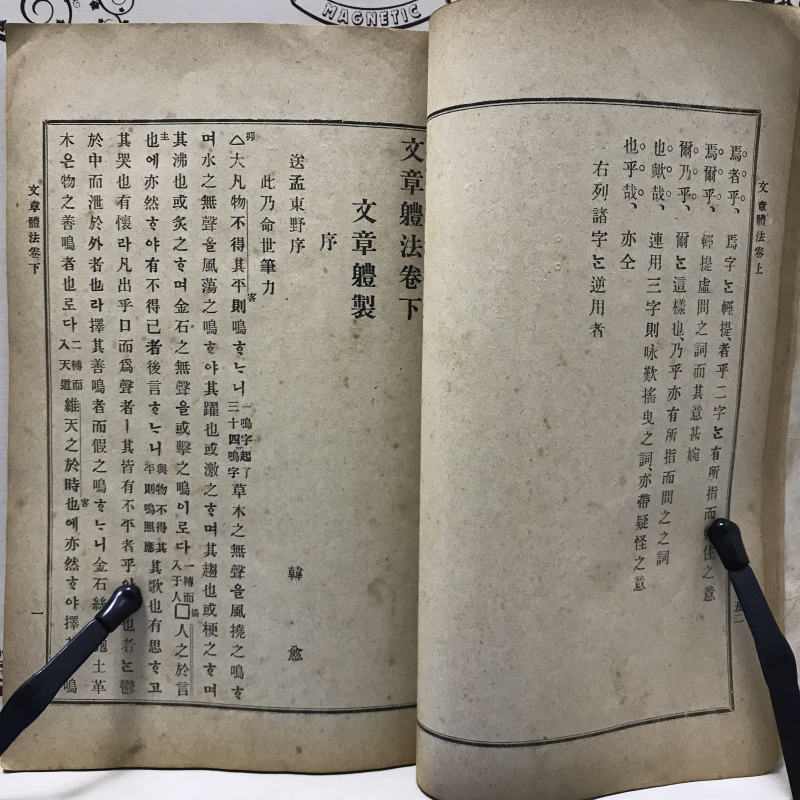 MAGNETIC
文章體法卷上
焉者乎、 焉字는輕提、者乎二字는有所指而住之意
焉爾乎、 輕提虛問之詞而其意甚婉
爾乃乎、 爾는這樣也、乃乎亦有所指而問之之詞
也歟哉、 連用三字則咏歎搖曳之詞、亦帶疑怪之意
也乎哉、 亦仝
右列諸字는逆用者
五二
文章軆法卷下
文章軆製
序
送孟東野序 韓愈
此乃命世筆力
△大凡物不得其平則鳴ᄒᆞᄂᆞ니 一鳴字起了三十四鳴字 草木之無聲을風撓之鳴ᄒᆞ
며水之無聲을風蕩之鳴ᄒᆞ야其躍也或激之ᄒᆞ며其趨也或梗之ᄒᆞ며
其沸也或炙之ᄒᆞ며金石之無聲을或擊之鳴이로다 一轉而入于人 □人之於言
也에亦然ᄒᆞ야有不得已者後言ᄒᆞᄂᆞ니 與物不得其平則鳴照應 其歌也有思ᄒᆞ고
其哭也有懷라凡出乎口而爲聲者ㅣ其皆有不平者乎也者는鬱
於中而泄於外者也라擇其善鳴者而假之鳴ᄒᆞᄂᆞ니金石絲土革
木은物之善鳴者也로다 二轉而入天道 維天之於時也에亦然ᄒᆞ야擇鳴
文章體法卷下
一